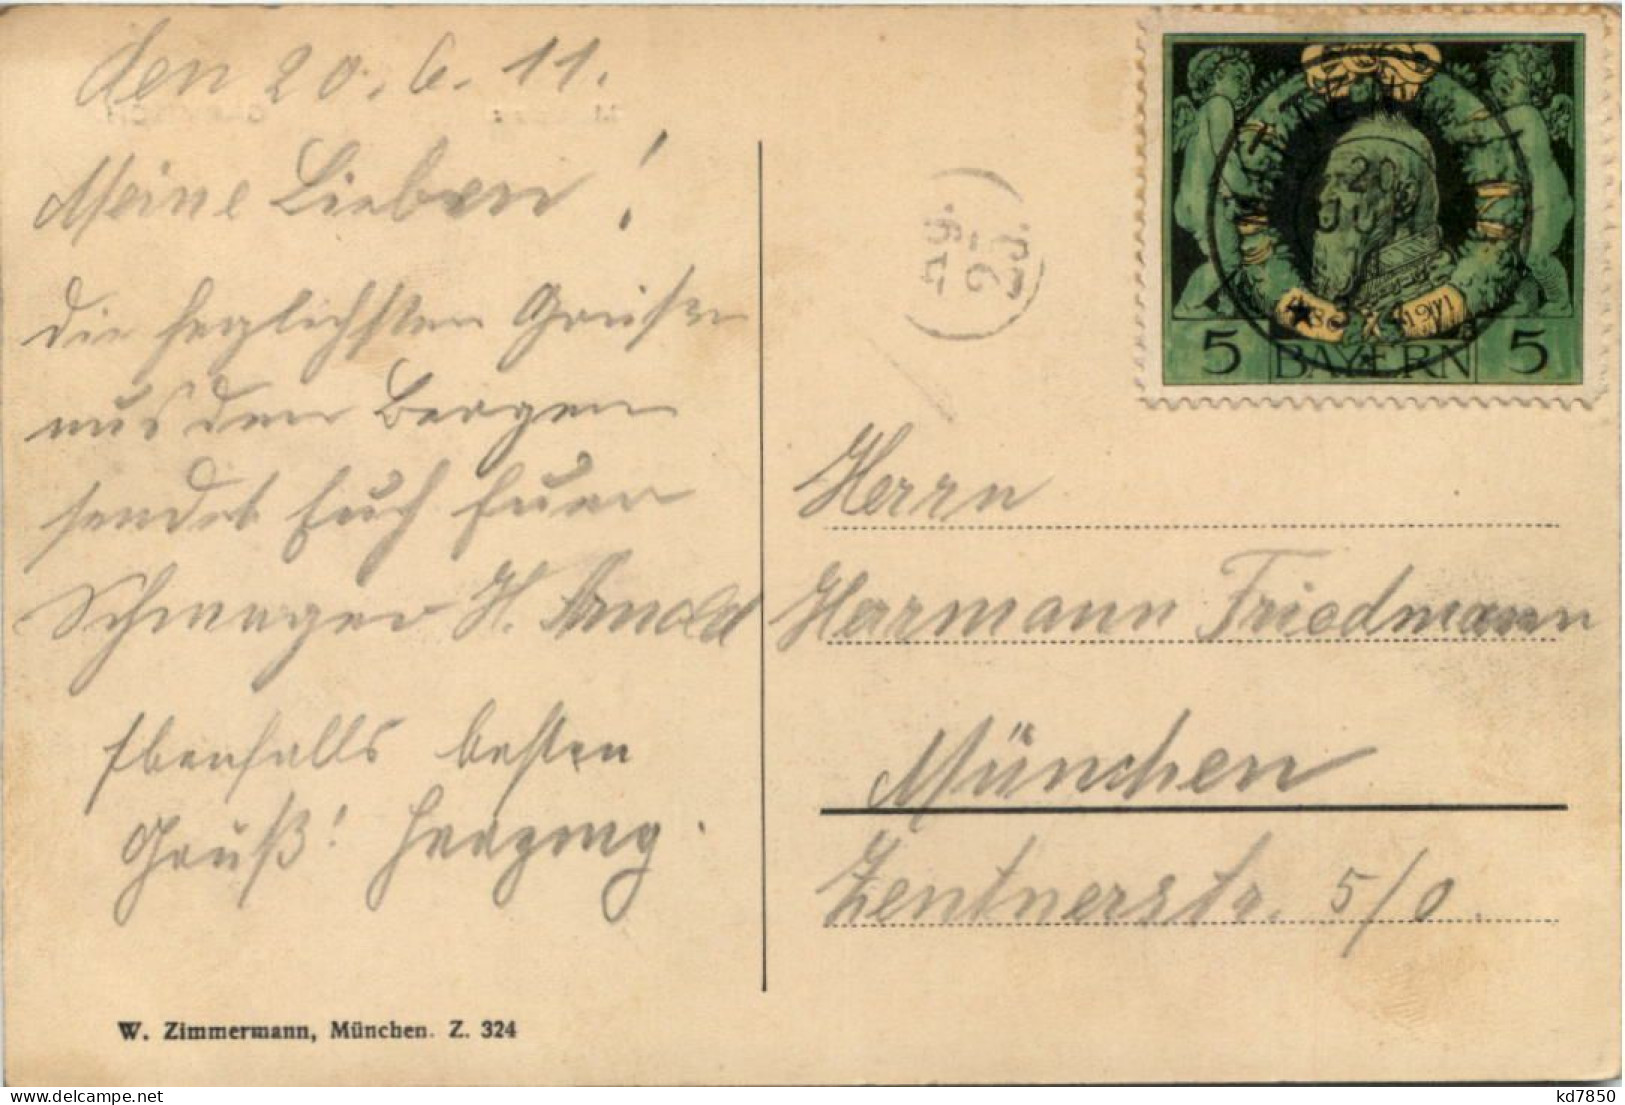 den 20. 6. 11.
Meine Lieben!
die herzlichsten Grüße
aus den Bergen
sendet Euch Euer
Schwager H. Arnold
Ebenfalls besten
Gruß!
MITTENW
20
JUN
11
1886 1911
5 BAYERN 5
Herrn
Hermann Friedmann
München
Zentnerstr. 5/0.
W. Zimmermann, München. Z. 324
kd7850